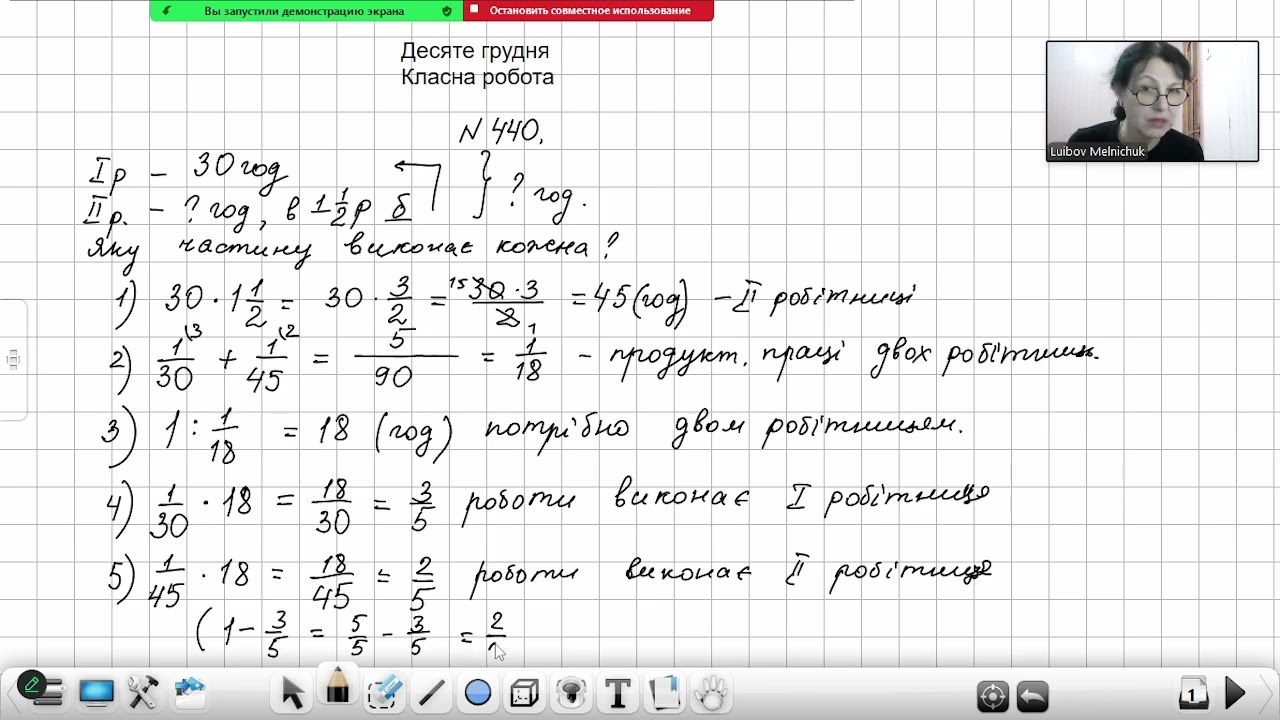 Вы запустили демонстрацию экрана Остановить совместное использование
Десяте грудня
Класна робота
N 440.
Luibov Melnichuk
I р – 30 год
II р. – ? год, в 1 1/2 р б } ? год.
Яку частину виконає кожна?
1) 30 · 1 1/2 = 30 · 3/2 = 30 · 3/2 = 45 (год) – II робітниці
2) 1/30 + 1/45 = 5/90 = 1/18 – продукт. праці двох робітниць.
3) 1 : 1/18 = 18 (год) потрібно двом робітницям.
4) 1/30 · 18 = 18/30 = 3/5 роботи виконає I робітниця
5) 1/45 · 18 = 18/45 = 2/5 роботи виконає II робітниця
(1 – 3/5 = 5/5 – 3/5 = 2/
1